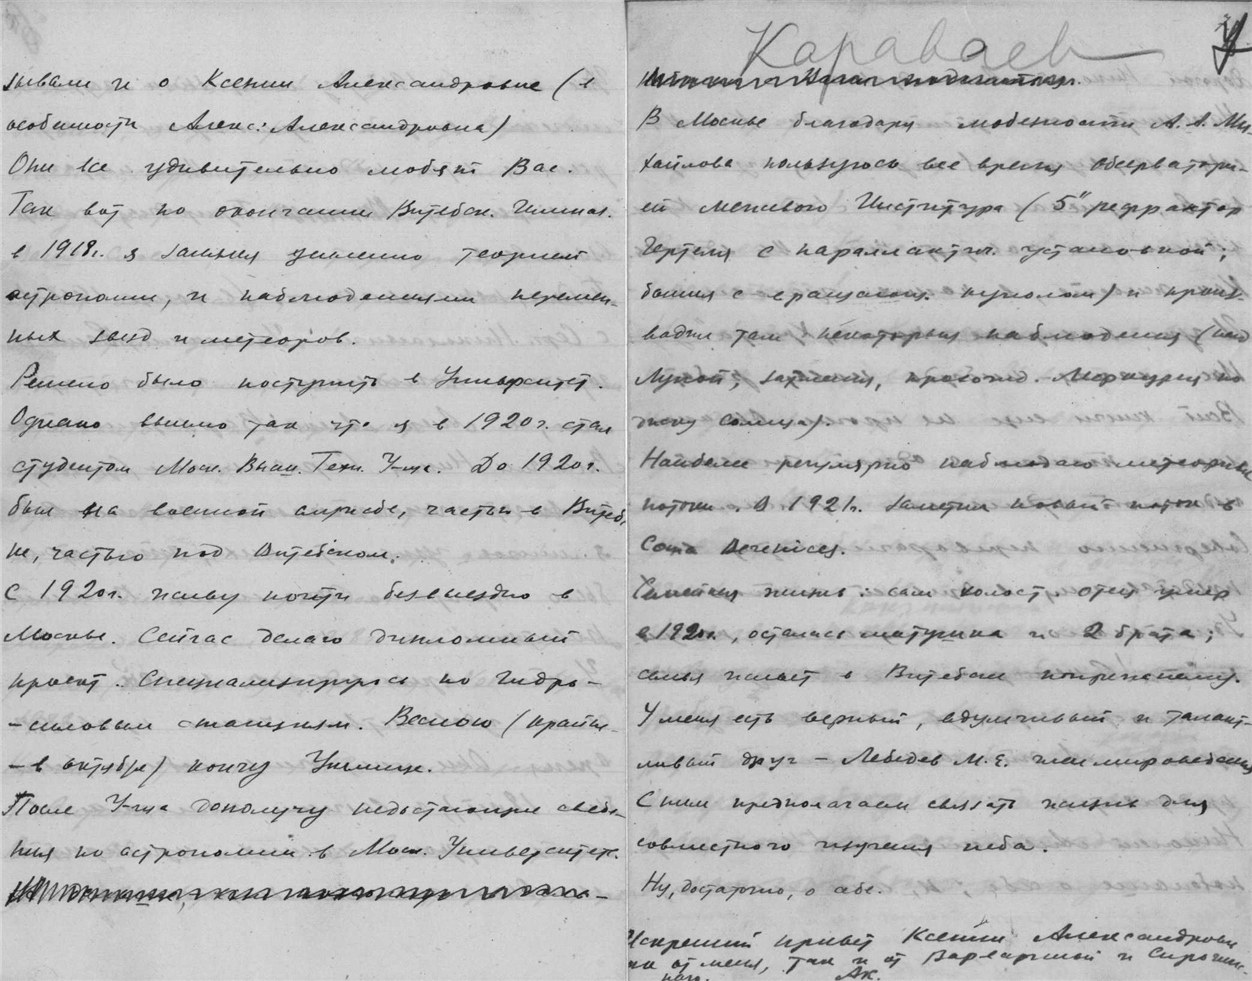 зывали и о Ксении Александровне (в
особенности Алекс. Александровна)
Они все удивительно любят Вас.
Так вот по окончании Витебск. Гимназ.
в 1918 г. я занялся усиленно теорией
астрономии, и наблюдениями перемен-
ных звезд и метеоров.
Решено было поступить в Университет.
Однако вышло так что я в 1920 г. стал
студентом Моск. Высш. Техн. У-ща. До 1920 г.
был на военной службе, частью в Витеб-
ске, частью под Витебском.
С 1920 г. живу почти безвыездно в
Москве. Сейчас делаю дипломный
проект. Специализируюсь по гидро-
-силовым станциям. Весною (крайн.
- в октябре) кончу Училище.
После У-ща дополучу недостающие сведе-
ния по астрономии в Моск. Университете.
Караваев
В Москве благодаря любезности А. А. Ми-
хайлова пользуюсь все время обсерватори-
ей Межевого Института (5" рефрактор
Гертеля с параллактич. установкой;
башня с вращающ. куполом) и произ-
водил там некоторые наблюдения (над
Луной, затмения, прохожд. Меркурия по
диску солнца).
Наиболее регулярно наблюдаю метеорные
потоки. В 1921 г. заметил новый поток в
Coma Berenices.
Семейная жизнь: сам холост. отец умер
в 1920 г., осталась матушка и 2 брата;
семья живет в Витебске
У меня есть верный, вдумчивый и талант-
ливый друг – Лебедев М. Е. член мироведения
С ним предполагаем связать жизнь для
совместного изучения неба.
Ну, достаточно, о себе.
Искренний привет Ксении Александровне
как от меня, так и от Варварин и
Ак.